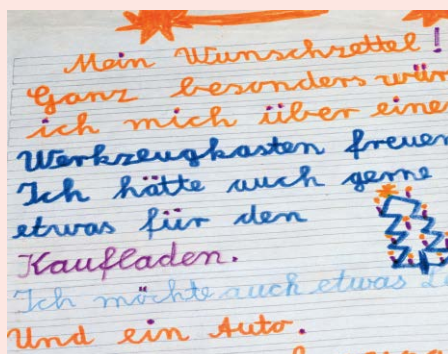 Mein Wunschzettel!
Ganz besonders wür
ich mich über eine
Werkzeugkasten freuen
Ich hätte auch gerne
etwas für den
Kaufladen.
Ich möchte auch etwas
Und ein Auto.